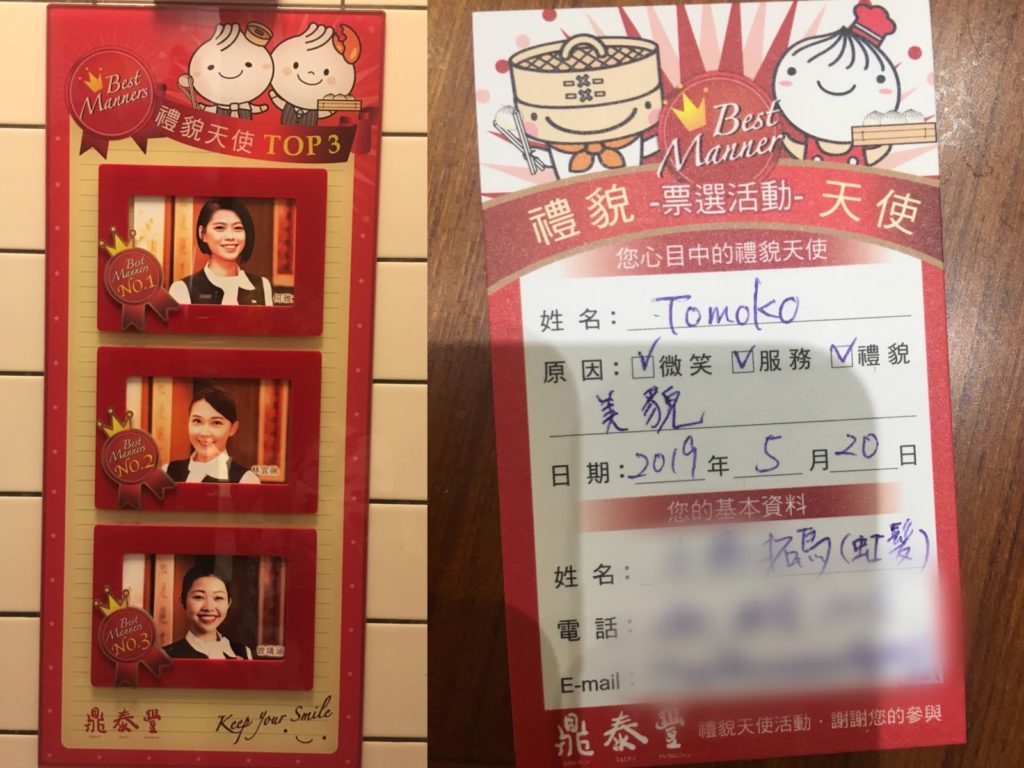 Best
Manners
禮貌天使 TOP 3
Best
Manners
NO.1
Best
Manners
NO.2
林宜
Best
Manners
NO.3
鼎泰豐
Keep Your Smile
Best
Manner
禮貌 -票選活動- 天使
您心目中的禮貌天使
姓名: Tomoko
原因: 微笑 服務 禮貌
美貌
日期: 2019 年 5 月 20 日
您的基本資料
姓名: 拓馬(虹髮)
電話:
E-mail:
鼎泰豐 禮貌天使活動·謝謝您的參與